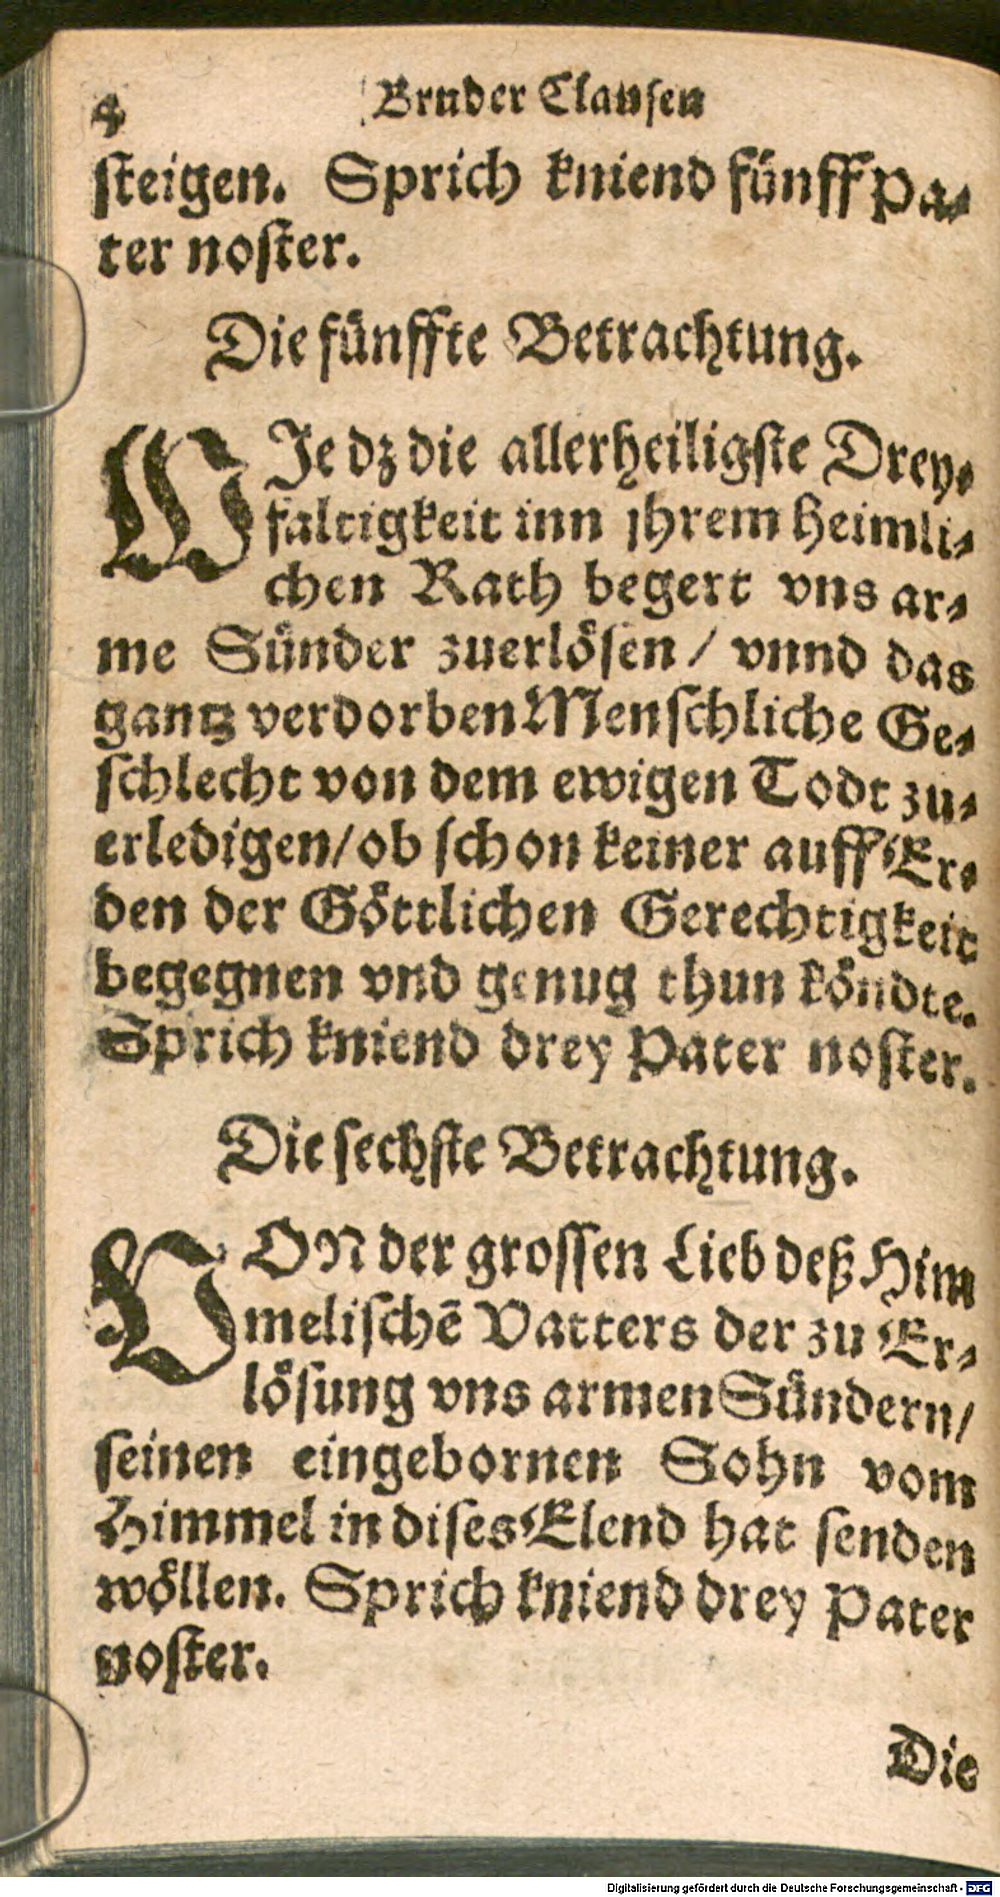 4 Bruder Clausen
steigen. Sprich kniend fünff Pa-
ter noster.
Die fünffte Betrachtung.
WJe dz die allerheiligste Drey-
faltigkeit inn jhrem heimli-
chen Rath begert vns ar-
me Sünder zuerlösen / vnnd das
gantz verdorben Menschliche Ge-
schlecht von dem ewigen Todt zu-
erledigen / ob schon keiner auff Er-
den der Göttlichen Gerechtigkeit
begegnen vnd genug thun köndte.
Sprich kniend drey Pater noster.
Die sechste Betrachtung.
VON der grossen Lieb deß Him
melischẽ Vatters der zu Er-
lösung vns armen Sündern /
seinen eingebornen Sohn vom
Himmel in dises Elend hat senden
wöllen. Sprich kniend drey Pater
noster.
Die
Digitalisierung gefördert durch die Deutsche Forschungsgemeinschaft - DFG